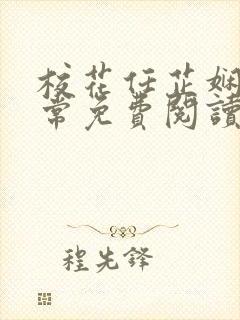 校花任芷娴
常免費閱讀
程先鋒